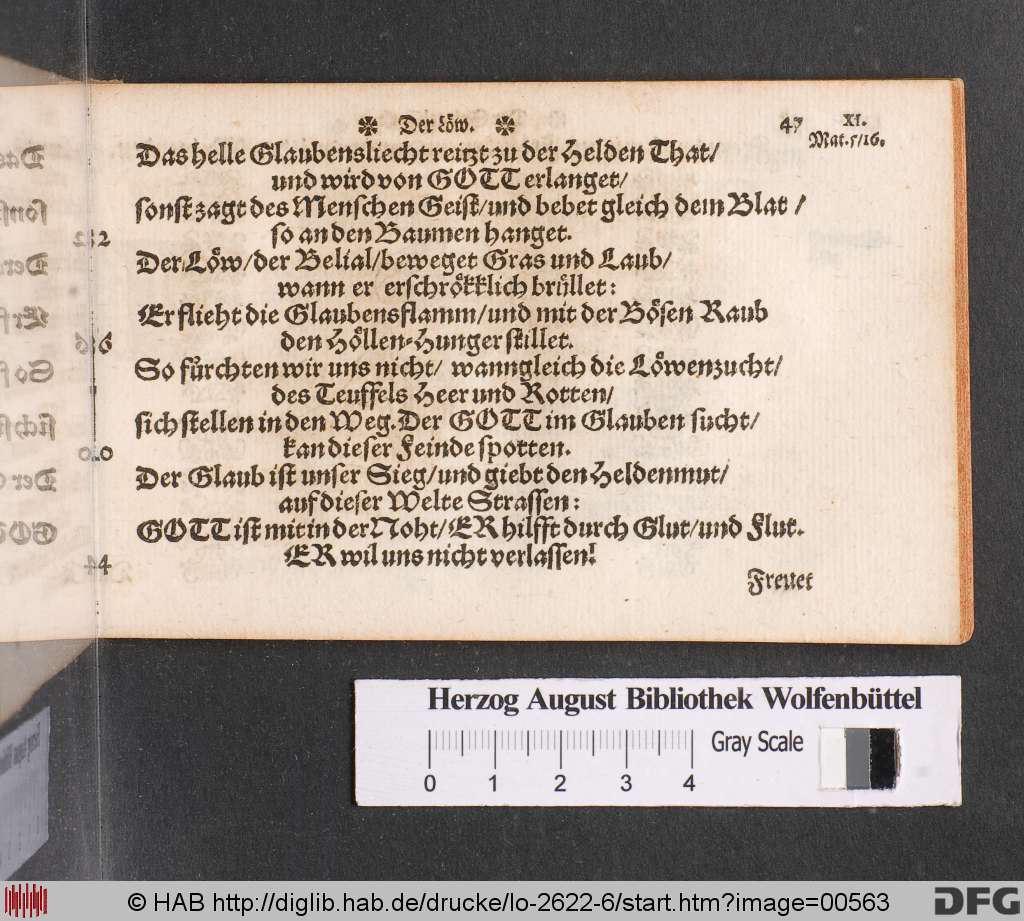 ✼ Der Löw. ✼ 47 XI.
Mat. 5/16.
Das helle Glaubensliecht reitzt zu der Helden That/
und wird von GOTT erlanget/
sonst zagt des Menschen Geist/und bebet gleich dem Blat /
so an den Baumen hanget.
Der Löw/der Belial/beweget Gras und Laub/
wann er erschrökklich brüllet:
Er flieht die Glaubensflamm/und mit der Bösen Raub
den Höllen-Hunger stillet.
So fürchten wir uns nicht/ wanngleich die Löwenzucht/
des Teuffels Heer und Rotten/
sich stellen in den Weg. Der GOTT im Glauben sucht/
kan dieser Feinde spotten.
Der Glaub ist unser Sieg/und giebt den Heldenmut/
auf dieser Welte Strassen:
GOTT ist mit in der Noht/ER hilfft durch Glut/und Flut.
ER wil uns nicht verlassen!
Freuet
Herzog August Bibliothek Wolfenbüttel
Gray Scale
0 1 2 3 4
© HAB http://diglib.hab.de/drucke/lo-2622-6/start.htm?image=00563
DFG